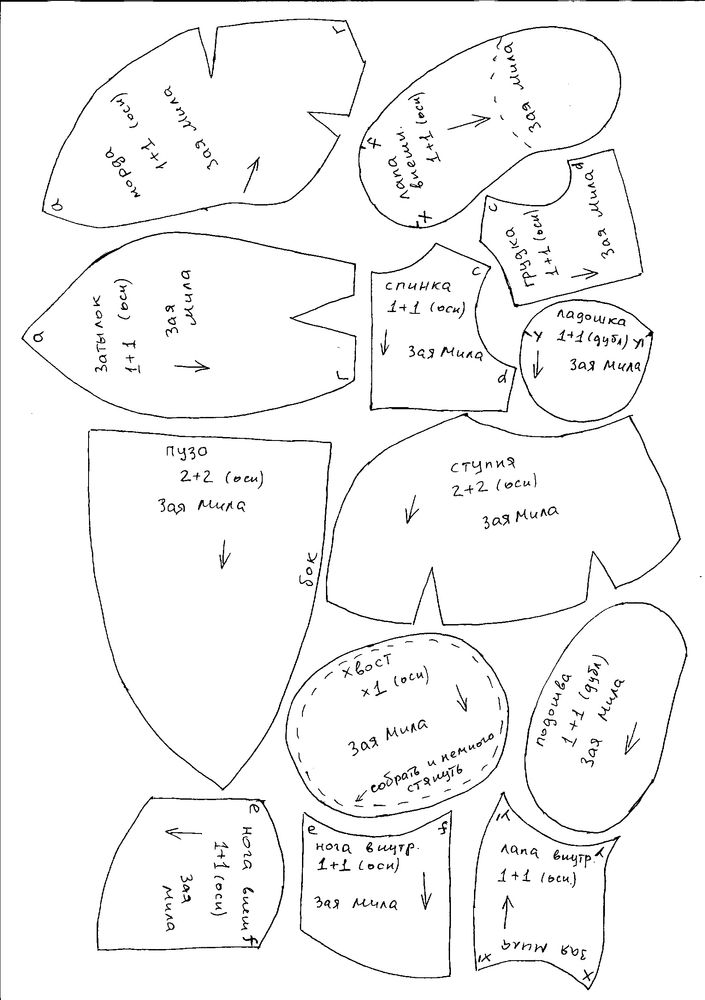 г
морда
1+1 (оси)
Зая Мила
а
лапа
внешн.
1+1 (оси)
Зая Мила
х
'х
с
d
грудка
1+1 (оси)
Зая Мила
а
Затылок
1+1 (оси)
Зая
Мила
г
спинка
1+1 (оси)
Зая Мила
с
d
ладошка
1+1 (дубл)
Зая Мила
у
у'
пузо
2+2 (оси)
Зая Мила
бок
ступня
2+2 (оси)
Зая Мила
хвост
х1 (оси)
Зая Мила
собрать и немного
стянуть
подошва
1+1 (дубл)
Зая Мила
е
нога внеш
1+1 (оси)
Зая
Мила
f
е
f
нога внутр.
1+1 (оси)
Зая Мила
у'
у
лапа внутр.
1+1 (оси)
Зая Мила
х'
х